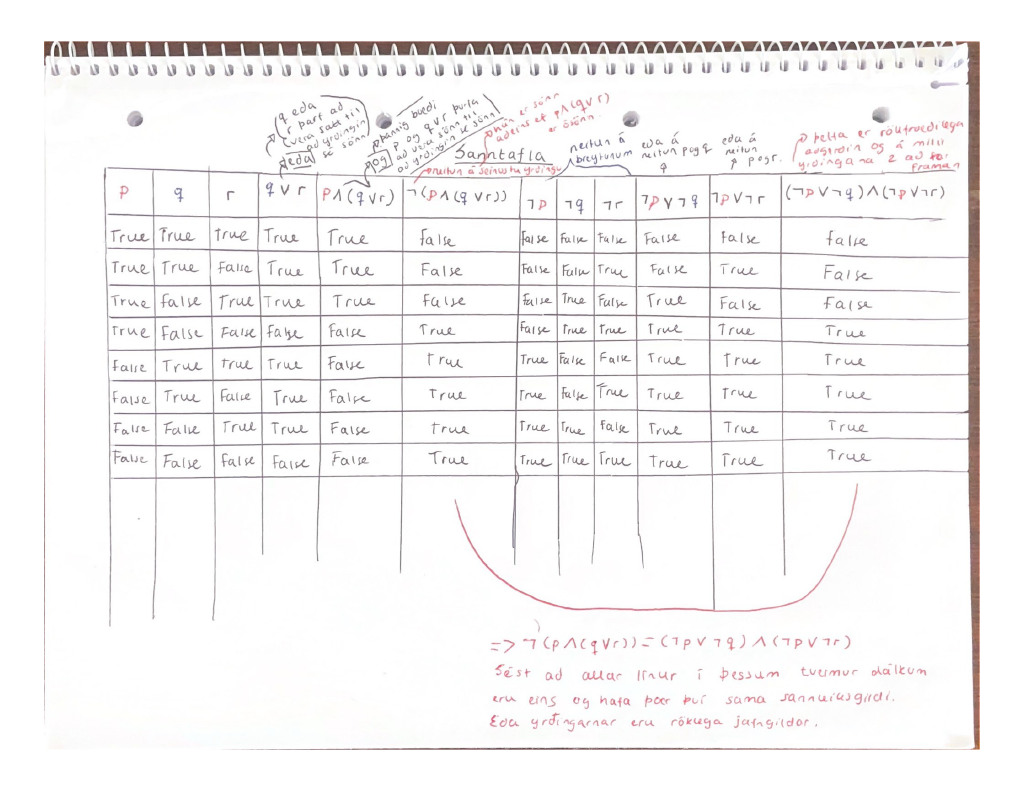 q eda
r þart ad
vera satt til
ad yrdingin
sé sönn
eda
þannig bædi
p og qvr þurfa
ad vera sönn til
ad yrdingin sé sönn
og
hún er sönn
aðeins ef p∧(q∨r)
er ósönn.
neitun á seinustu yrdingu
Sanntafla
neitun á
breytunum
eda á
neitun p og q
eda á
neitun
p og r.
þetta er rökfrædilega
adgerdin og á milli
yrdingana 2 ad
framan
p q r q∨r p∧(q∨r) ¬(p∧(q∨r)) ¬p ¬q ¬r ¬p∨¬q ¬p∨¬r (¬p∨¬q)∧(¬p∨¬r)
True True true True True false False False False False False false
True True False True True False False False True False True False
True false True True True False False True False True False False
True False False false False True False True True True True True
False True true True False true True False False True True True
False True False True False True True False True True True True
False False True True False true True True False True True True
False False false False False True True True True True True True
=> ¬(p∧(q∨r)) = (¬p∨¬q)∧(¬p∨¬r)
Sést ad allar línur í þessum tveimur dálkum
eru eins og hafa þær því sama sannleiksgildi.
Eda yrðingarnar eru rökuga jafngildar.